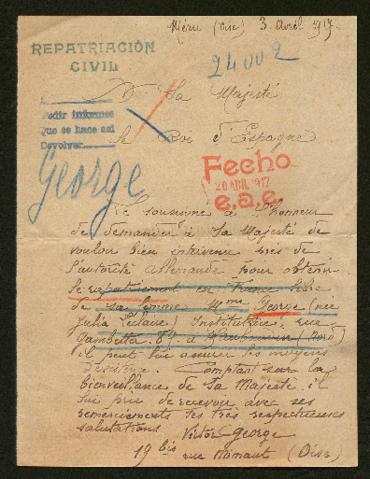 Méru (Oise) 3 Avril 1917.
REPATRIACIÓN
CIVIL
24002
A Sa Majesté
Pedir informes
Que se hace así
Devolver
le Roi d'Espagne
George
Fecho
20 ABR. 1917
e.a.c.
Le soussigné a l'honneur
de demander à Sa Majesté de
vouloir bien intervenir près de
l'autorité Allemande pour obtenir
le rapatriement en France libre
de sa femme Mme George (née
Julia Leclaire) Institutrice, rue
Gambetta à (Nord)
il peut lui assurer les moyens
. Comptant sur la
bienveillance de Sa Majesté il
lui prie de recevoir avec ses
remerciements ses très respectueuses
salutations Victor George
19 bis rue (Oise)